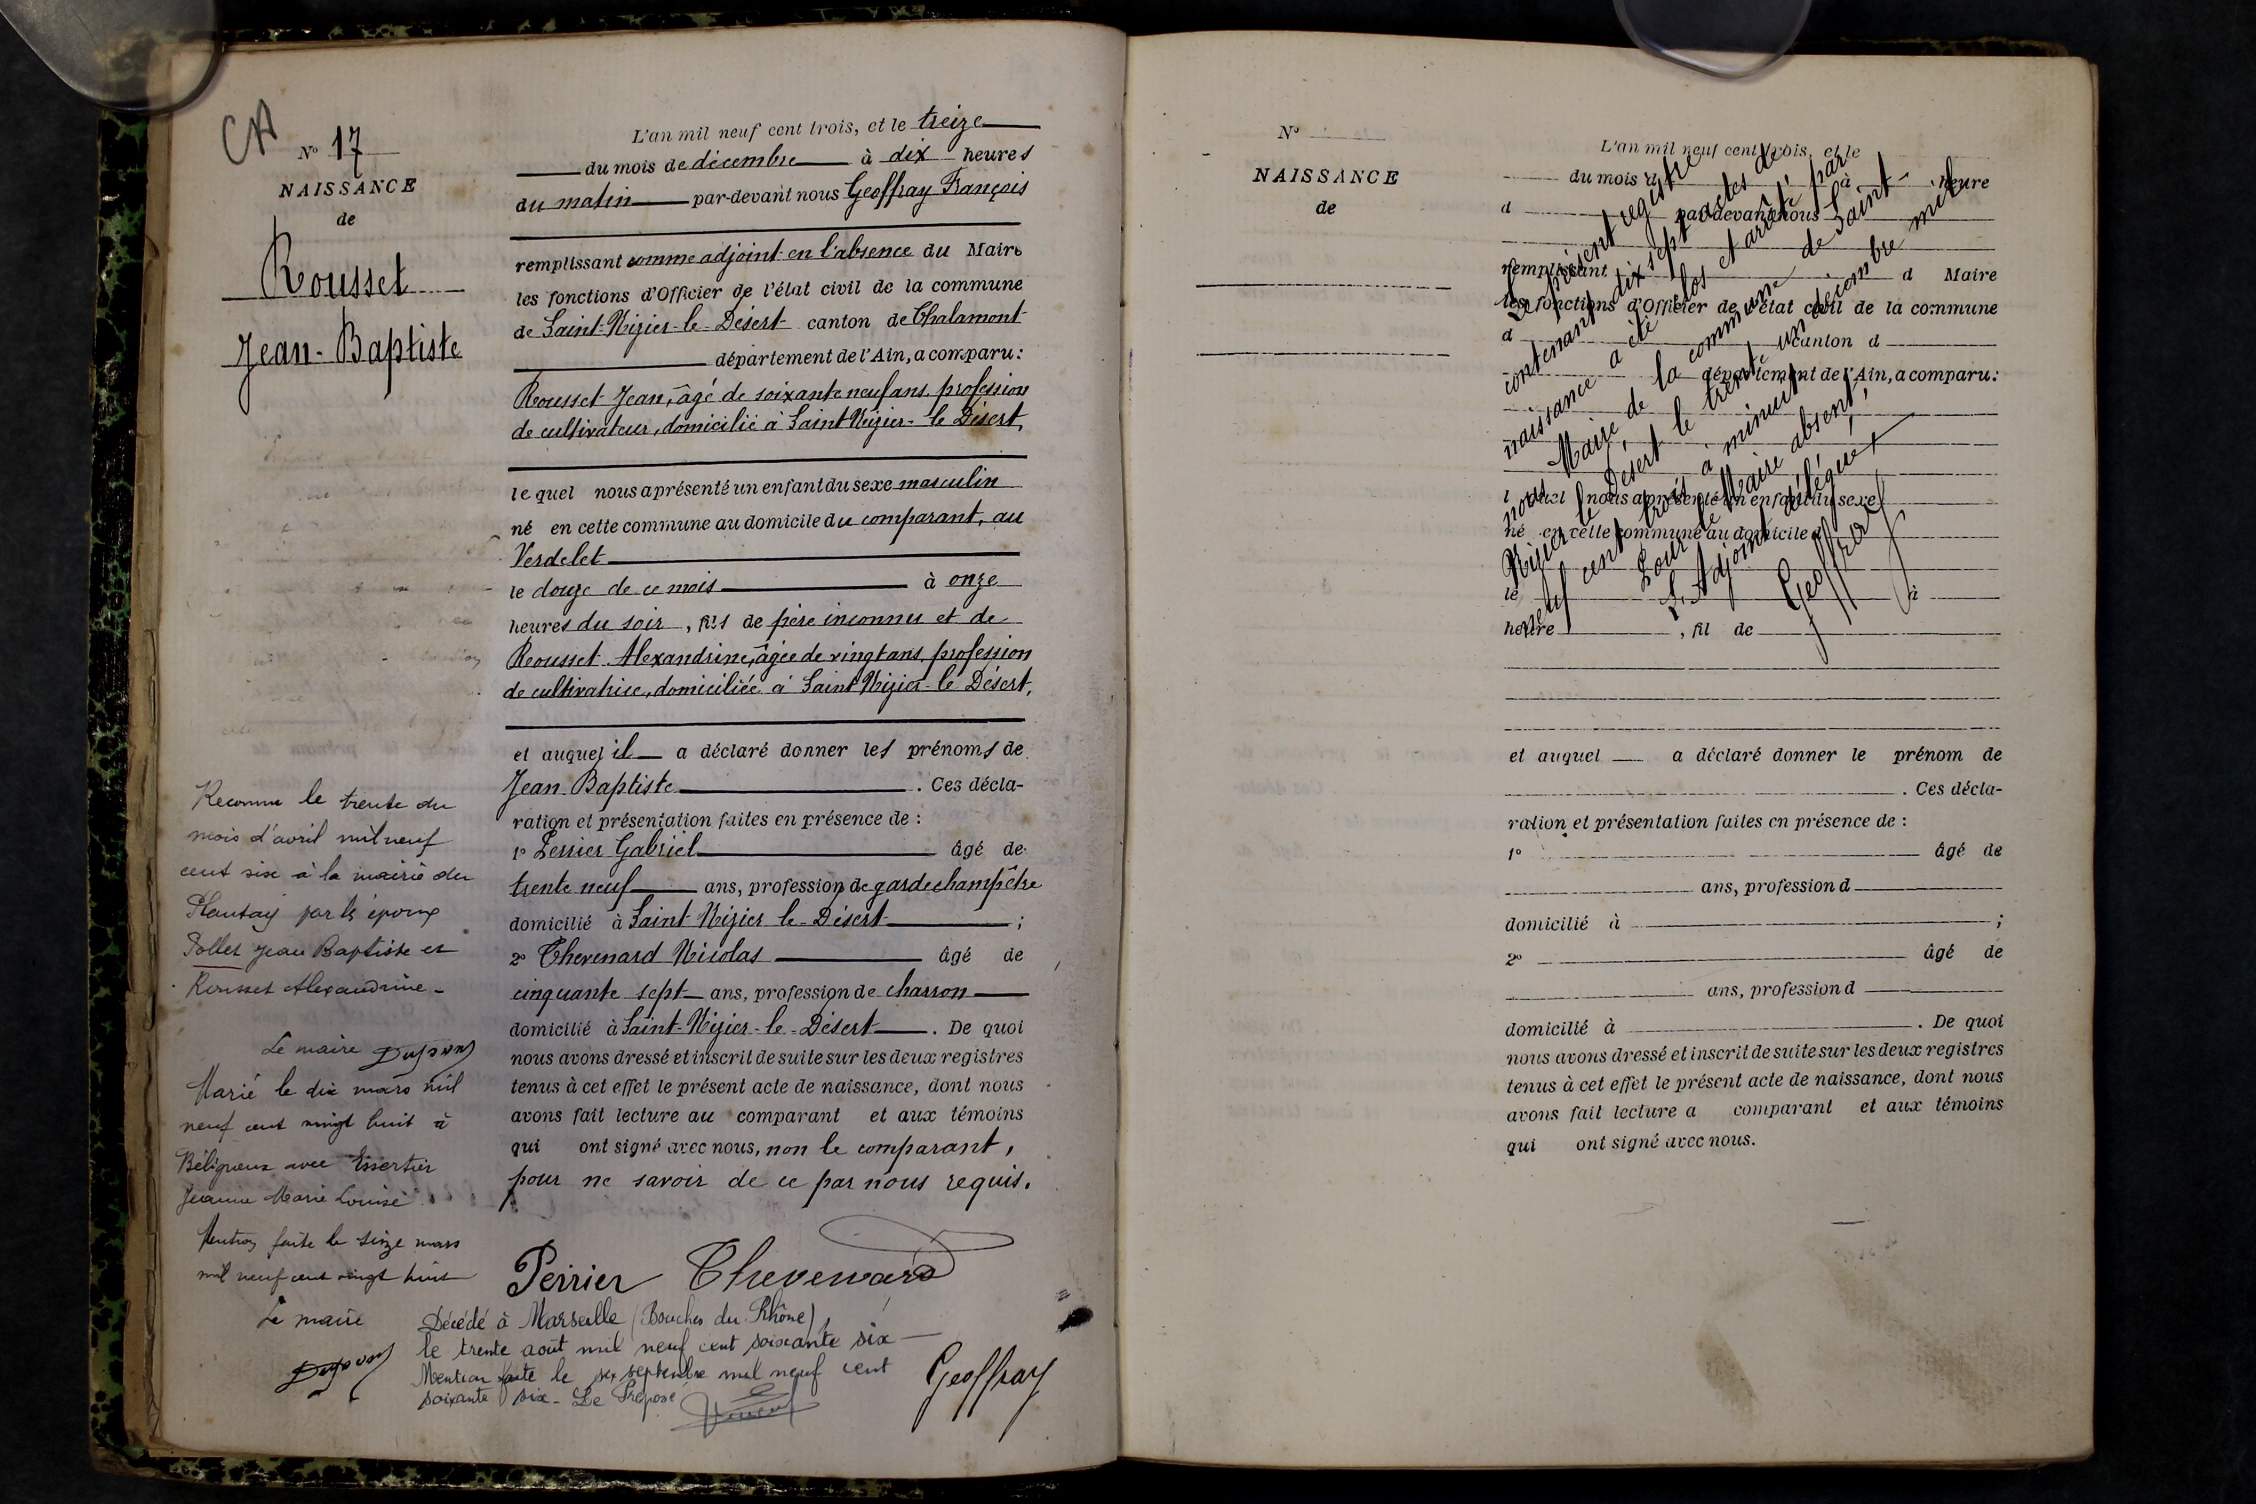 CA
N° 17
NAISSANCE
de
Rousset
Jean-Baptiste
L'an mil neuf cent trois, et le treize
du mois de décembre à dix heures
du matin par-devant nous Geoffray François
remplissant comme adjoint en l'absence du Maire
les fonctions d'Officier de l'état civil de la commune
de Saint-Nizier-le-Désert canton de Chalamont
département de l'Ain, a comparu:
Rousset Jean, âgé de soixante neuf ans, profession
de cultivateur, domicilié à Saint Nizier-le Désert,
lequel nous a présenté un enfant du sexe masculin
né en cette commune au domicile du comparant, au
Verdelet
le douze de ce mois à onze
heures du soir, fils de père inconnu et de
Rousset Alexandrine, âgée de vingt ans, profession
de cultivatrice, domiciliée à Saint Nizier-le Désert,
et auquel il a déclaré donner les prénoms de
Jean-Baptiste. Ces décla-
ration et présentation faites en présence de :
1° Perrier Gabriel âgé de
trente neuf ans, profession de garde champêtre
domicilié à Saint Nizier-le-Désert ;
2° Thevenard Nicolas âgé de
cinquante sept ans, profession de charron
domicilié à Saint-Nizier-le-Désert. De quoi
nous avons dressé et inscrit de suite sur les deux registres
tenus à cet effet le présent acte de naissance, dont nous
avons fait lecture au comparant et aux témoins
qui ont signé avec nous, non le comparant,
pour ne savoir de ce par nous requis.
Perrier Thevenard
Geoffray
Reconnu le trente du
mois d'avril mil neuf
cent six à la mairie du
Plantay par les époux
Pollet Jean Baptiste et
Rousset Alexandrine-
Le maire
Marié le dix mars mil
neuf cent vingt huit à
Béligneux avec Essertier
Jeanne Marie Louise
Mention faite le seize mars
mil neuf cent vingt huit
Le maire
Décédé à Marseille (Bouches du Rhône),
le trente août mil neuf cent soixante six
Mention faite le six septembre mil neuf cent
soixante six - Le Préposé
N°
NAISSANCE
de
L'an mil neuf cent trois, et le
du mois d à heure
d par-devant nous
remplissant d Maire
les fonctions d'Officier de l'état civil de la commune
d canton d
département de l'Ain, a comparu:
lequel nous a présenté un enfant du sexe
né en cette commune au domicile d
le à
heure , fil de
et auquel a déclaré donner le prénom de
. Ces décla-
ration et présentation faites en présence de :
1° âgé de
ans, profession d
domicilié à ;
2° âgé de
ans, profession d
domicilié à . De quoi
nous avons dressé et inscrit de suite sur les deux registres
tenus à cet effet le présent acte de naissance, dont nous
avons fait lecture a comparant et aux témoins
qui ont signé avec nous.
Le présent registre
contenant dix sept actes de
naissance a été clos et arrêté par
nous Maire de la commune de Saint-
Nizier le Désert le trente un décembre mil
neuf cent trois à minuit
Pour le Maire absent,
L'Adjoint délégué
Geoffray